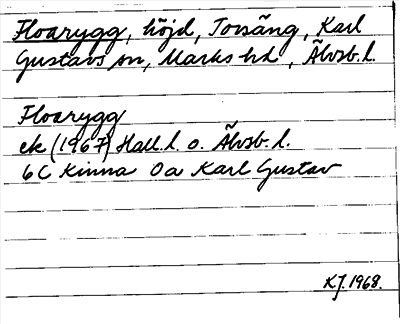 Floarygg, höjd, Torsäng, Karl
Gustavs sn, Marks hd, Älvsb. l.
Floarygg
ek (1967) Hall. l. o. Älvsb. l.
6C Kinna 0a Karl Gustav
KJ. 1968.